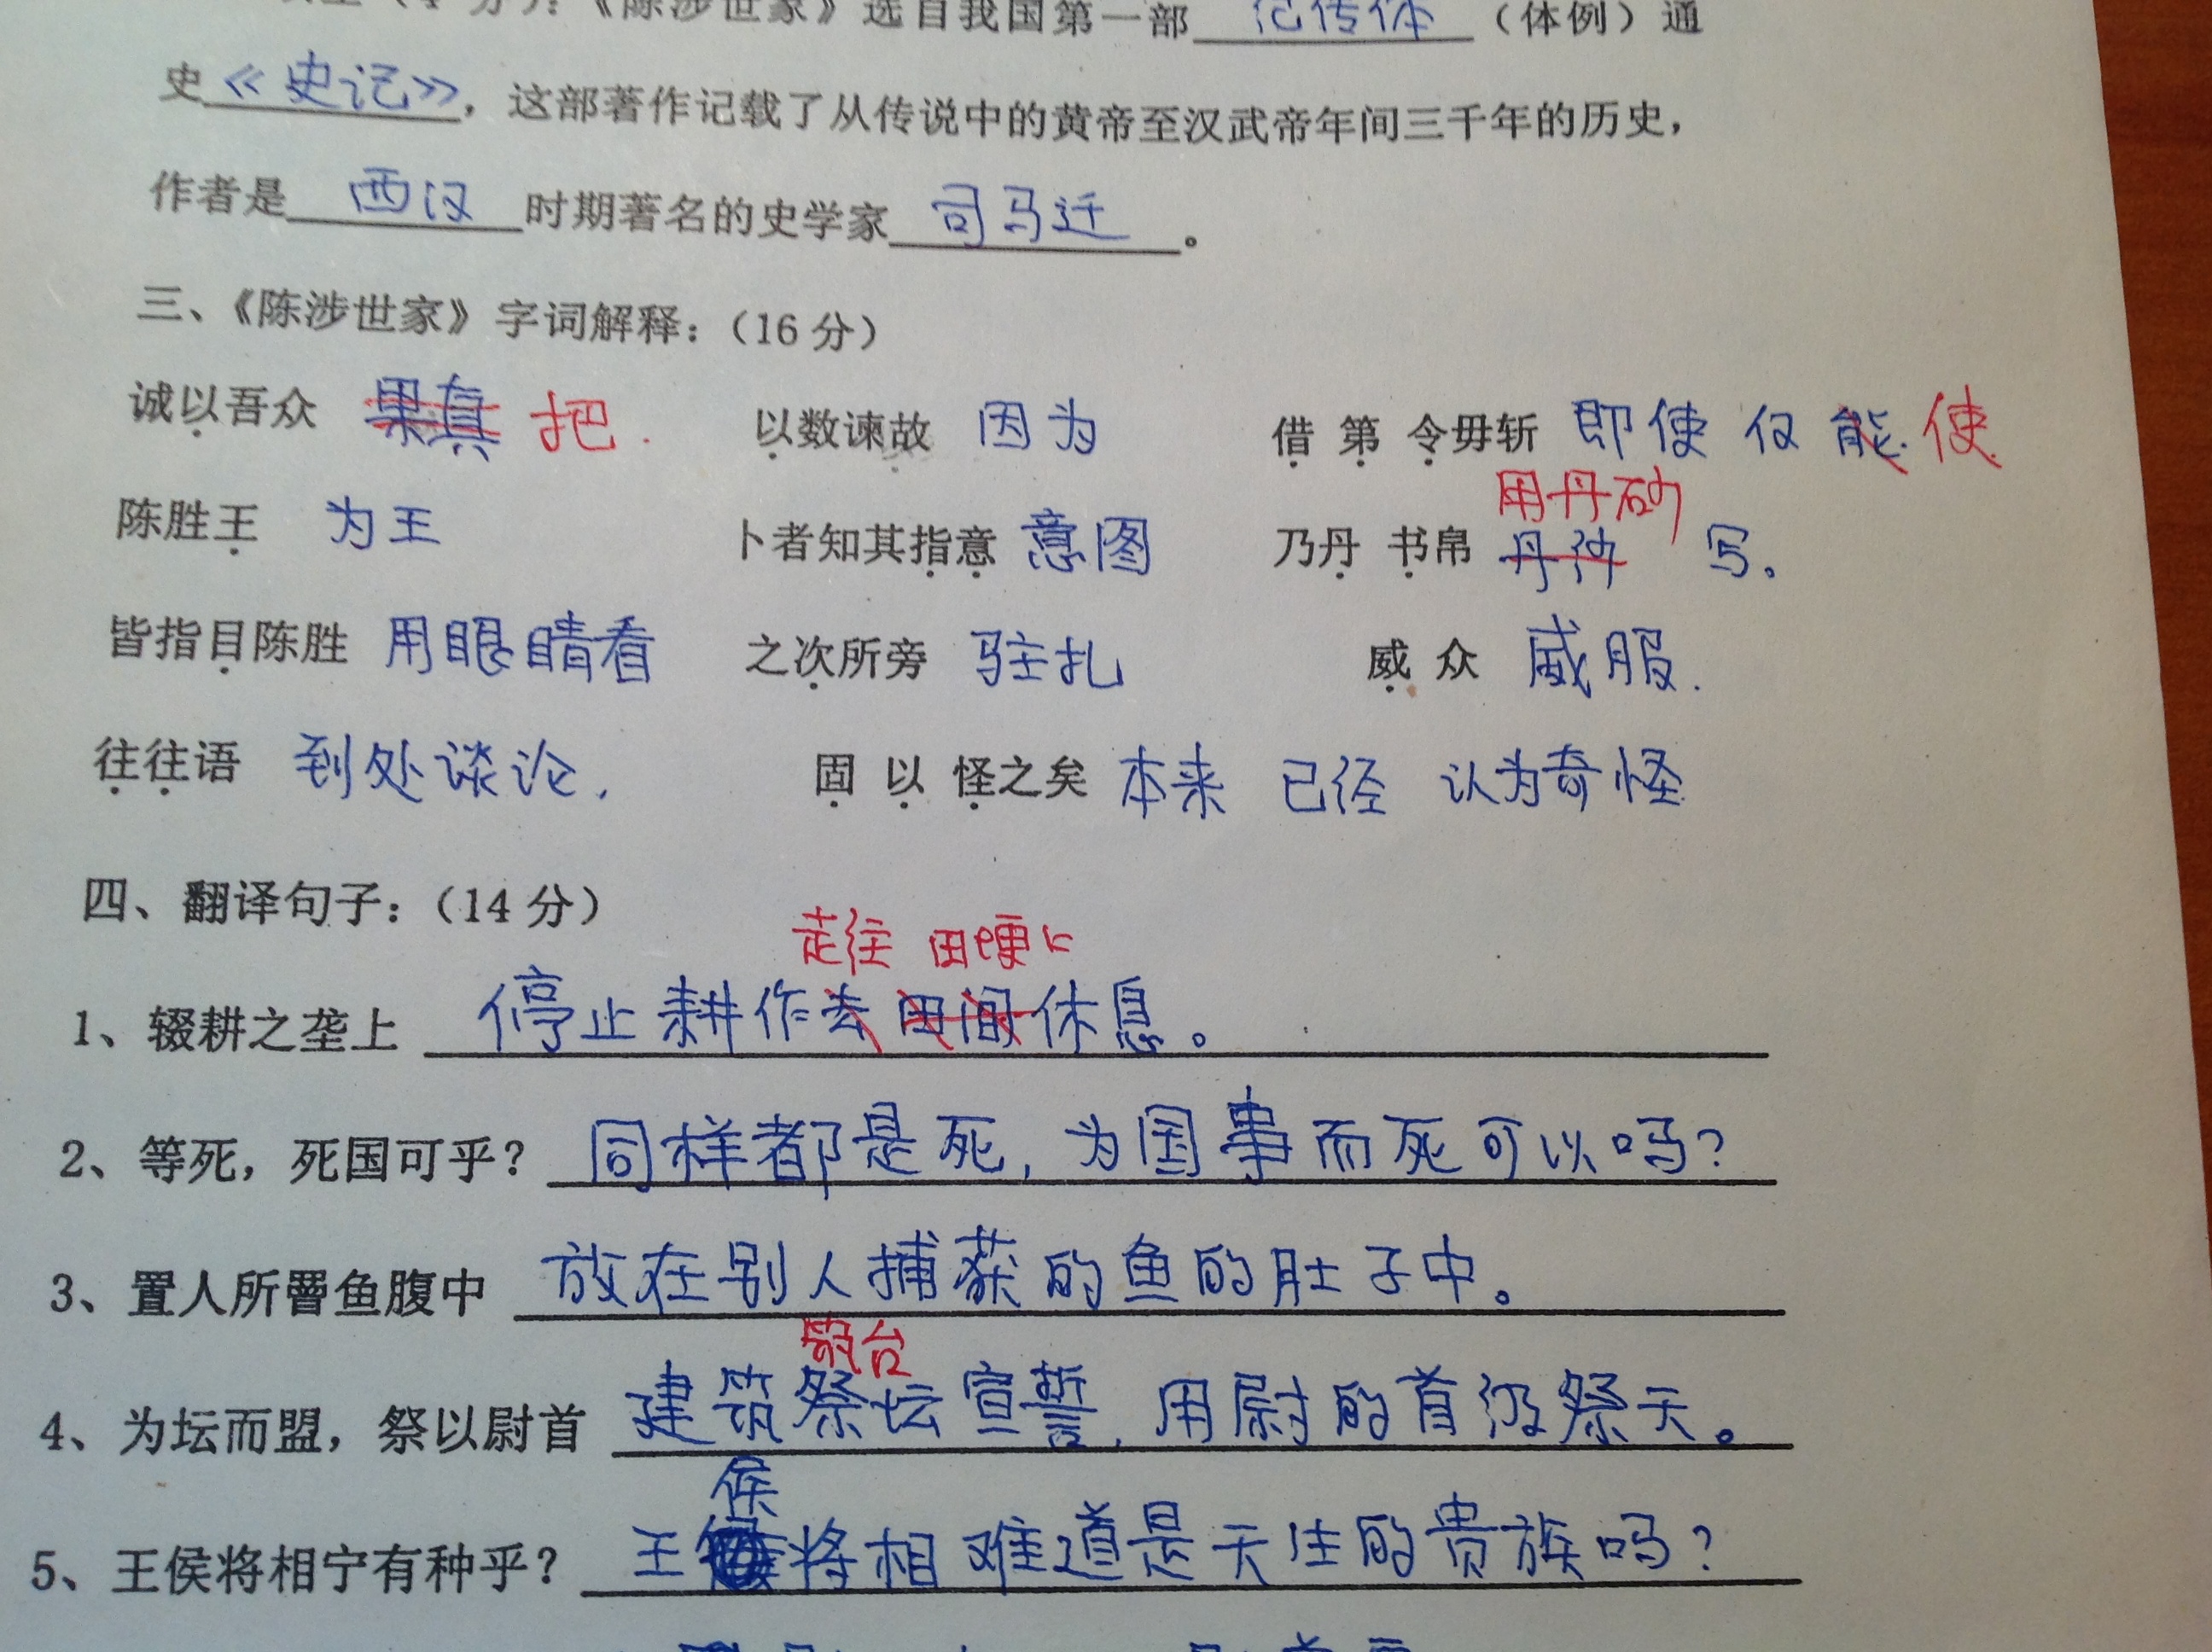 《陈涉世家》选自我国第一部 记传体 （体例）通
史《史记》，这部著作记载了从传说中的黄帝至汉武帝年间三千年的历史，
作者是 西汉 时期著名的史学家 司马迁 。
三、《陈涉世家》字词解释：（16 分）
诚以吾众 果真 把. 以数谏故 因为 借 第 令毋斩 即使 仅 能. 使
用丹砂
陈胜王 为王 卜者知其指意 意图 乃丹 书帛 丹沙 写。
皆指目陈胜 用眼睛看 之次所旁 驻扎 威 众 威服.
往往语 到处谈论. 固 以 怪之矣 本来 已经 认为奇怪
四、翻译句子：（14 分）
走往 田埂上
1、辍耕之垄上 停止耕作去田间休息。
2、等死，死国可乎？ 同样都是死，为国事而死可以吗？
3、置人所罾鱼腹中 放在别人捕获的鱼的肚子中。
台
4、为坛而盟，祭以尉首 建筑祭坛宣誓，用尉的首级祭天。
侯
5、王侯将相宁有种乎？ 王 将相难道是天生的贵族吗？